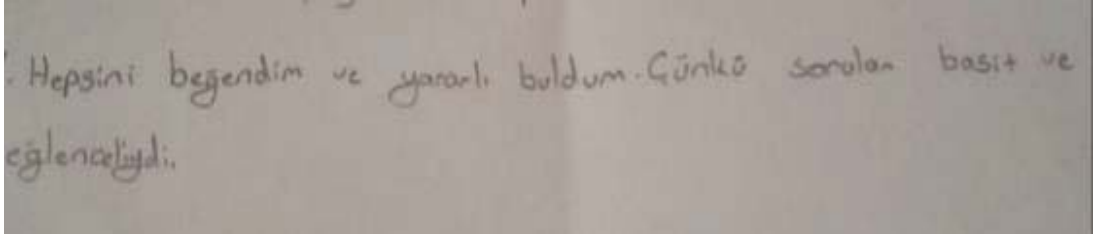 Hepsini beğendim ve yararlı buldum. Çünkü sorulan basit ve
eğlenceliydi.